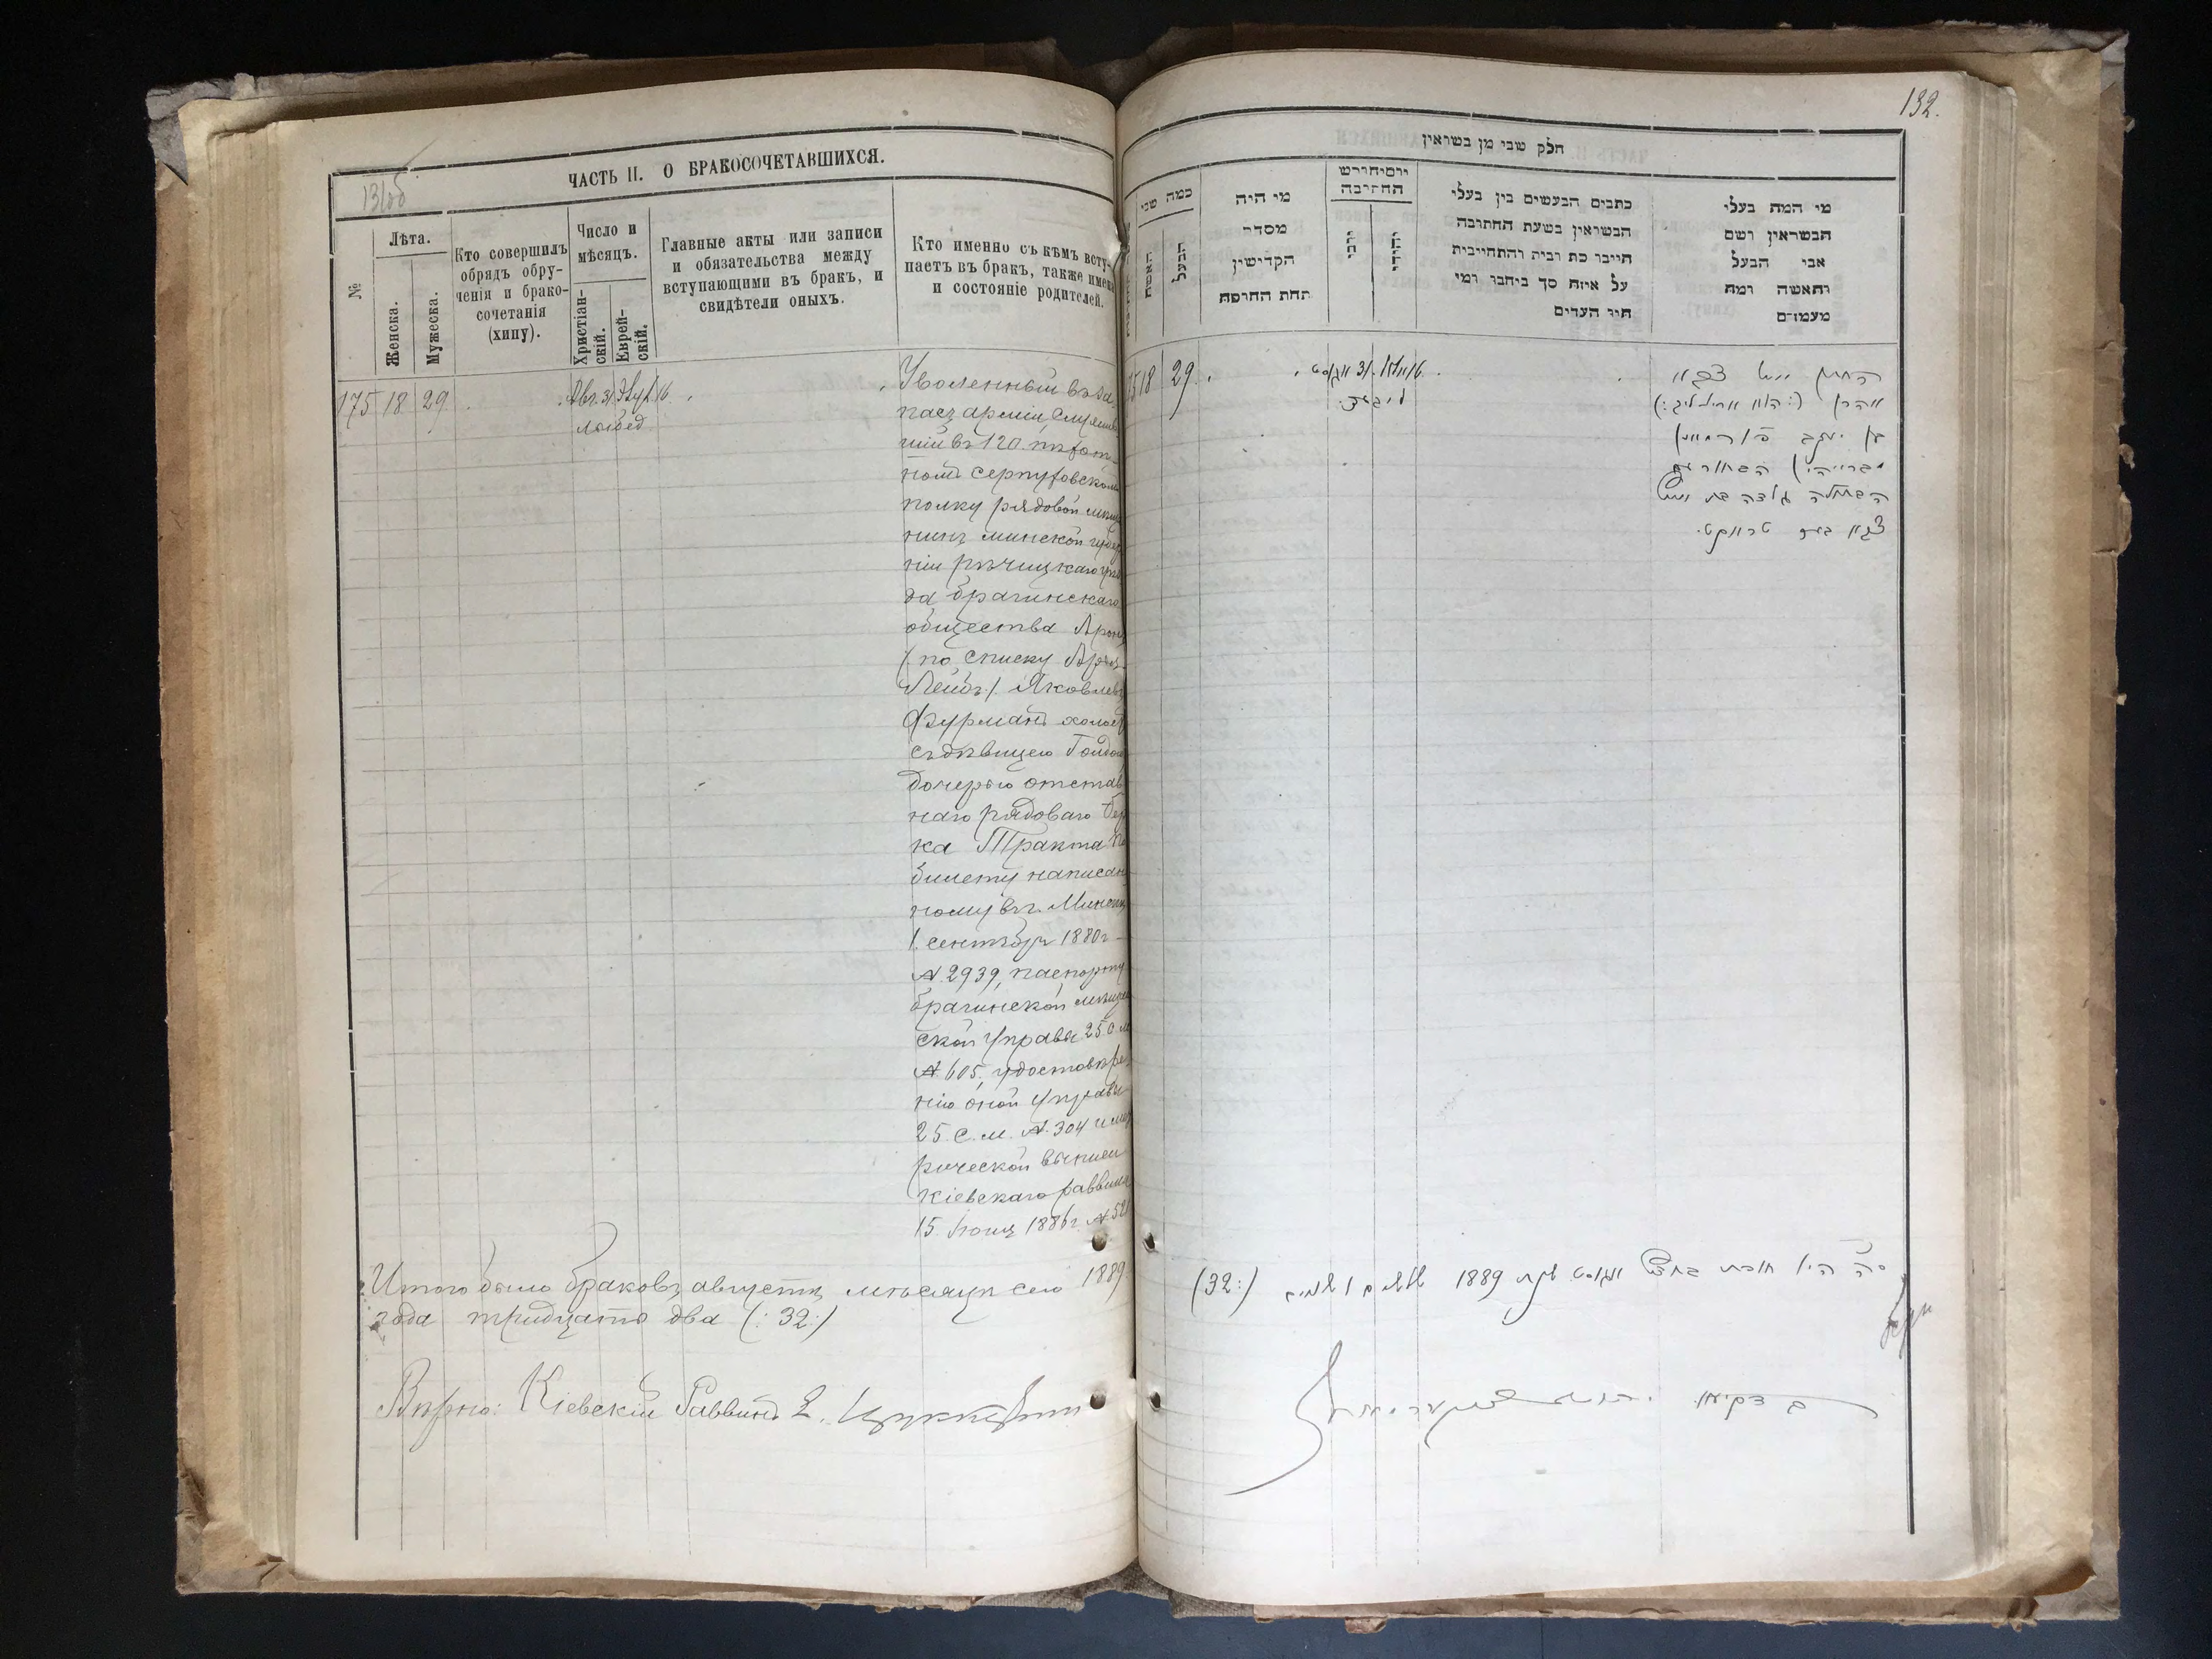 131об
ЧАСТЬ II. О БРАКОСОЧЕТАВШИХСЯ.
№
Лѣта.
Женска.
Мужеска.
Кто совершилъ
обрядъ обру-
ченія и брако-
сочетанія
(хипу).
Число и
мѣсяцъ.
Христіан-
скій.
Еврей-
скій.
Главные акты или записи
и обязательства между
вступающими въ бракъ, и
свидѣтели оныхъ.
Кто именно съ кѣмъ всту-
паетъ въ бракъ, также имена
и состояніе родителей.
175 18 29 Авг. 31 Элул 16
Лыбед
Уволенный въ за-
пасъ арміи, служив
шій въ 120 пѣхот-
номъ Серпуховскомъ
полку рядовой мѣща
нинъ минской губер
ніи рѣчицкаго уѣз
да брагинскаго
общества Аронъ
(по списку Аронъ-
Лейбъ) Яковлевъ
Фурманъ холост
съ дѣвицею Голдою
дочерью отстав
наго рядоваго Бер
ка Тракта. По
билету написан
ному въ г. Минскѣ
1 сентября 1880 г
№ 2939, паспорту
брагинской мѣщан
ской управы 25 с. м
№ 605, удостовѣре
нію оной управы
25 с. м. № 304 и мет
рической выписи
кіевскаго раввина
15 Іюня 1886 г. № 521
Итого было браковъ августѣ мѣсяцѣ сего 1889
года тридцать два (: 32 :)
Вѣрно: Кіевскій Раввинъ Е. Цуккерман
132.
חלק שני מן בשואין
כמה שני
האשה
הבעל
מי היה
מסדר
הקדישין
תחת החופה
יום וחודש
החתונה
כתבים הנעשים בין בעלי
הנשואין בשעת החתונה
חייבו כת רבית והתחייבית
על איזה סך ביחבו ומי
היו העדים
מי המה בעלי
הנשואין ושם
אבי הבעל
והאשה ומה
מעמדם
18 29 31 אויגוסט
החתן יוצא צבא
אהרן (: הוא ארי' ליב :)
בן יעקב פורמאן
הבתולה גולדה בת יוצא
צבא בערקא טראקט.
(32:) 1889